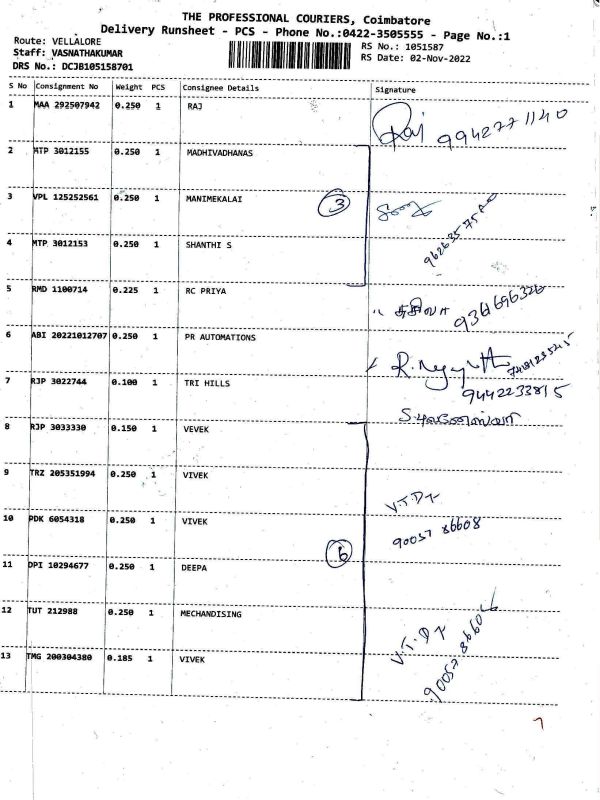 THE PROFESSIONAL COURIERS, Coimbatore
Delivery Runsheet - PCS - Phone No.:0422-3505555 - Page No.:1
Route: VELLALORE
RS No.: 1051587
Staff: VASNATHAKUMAR
RS Date: 02-Nov-2022
DRS No.: DCJB105158701
S No Consignment No Weight PCS Consignee Details Signature
1 MAA 292507942 0.250 1 RAJ Raj 9942771140
2 MTP 3012155 0.250 1 MADHIVADHANAS
3 VPL 125252561 0.250 1 MANIMEKALAI 3
4 MTP 3012153 0.250 1 SHANTHI S
5 RMD 1100714 0.225 1 RC PRIYA
6 ABI 20221012707 0.250 1 PR AUTOMATIONS
7 RJP 3022744 0.100 1 TRI HILLS 9442233815
8 RJP 3033330 0.150 1 VEVEK
9 TRZ 205351994 0.250 1 VIVEK V.T.DT
10 PDK 6054318 0.250 1 VIVEK 90057 86608
6
11 DPI 10294677 0.250 1 DEEPA
12 TUT 212988 0.250 1 MECHANDISING V.T.DT
13 TMG 200304380 0.185 1 VIVEK 90057 86608
7